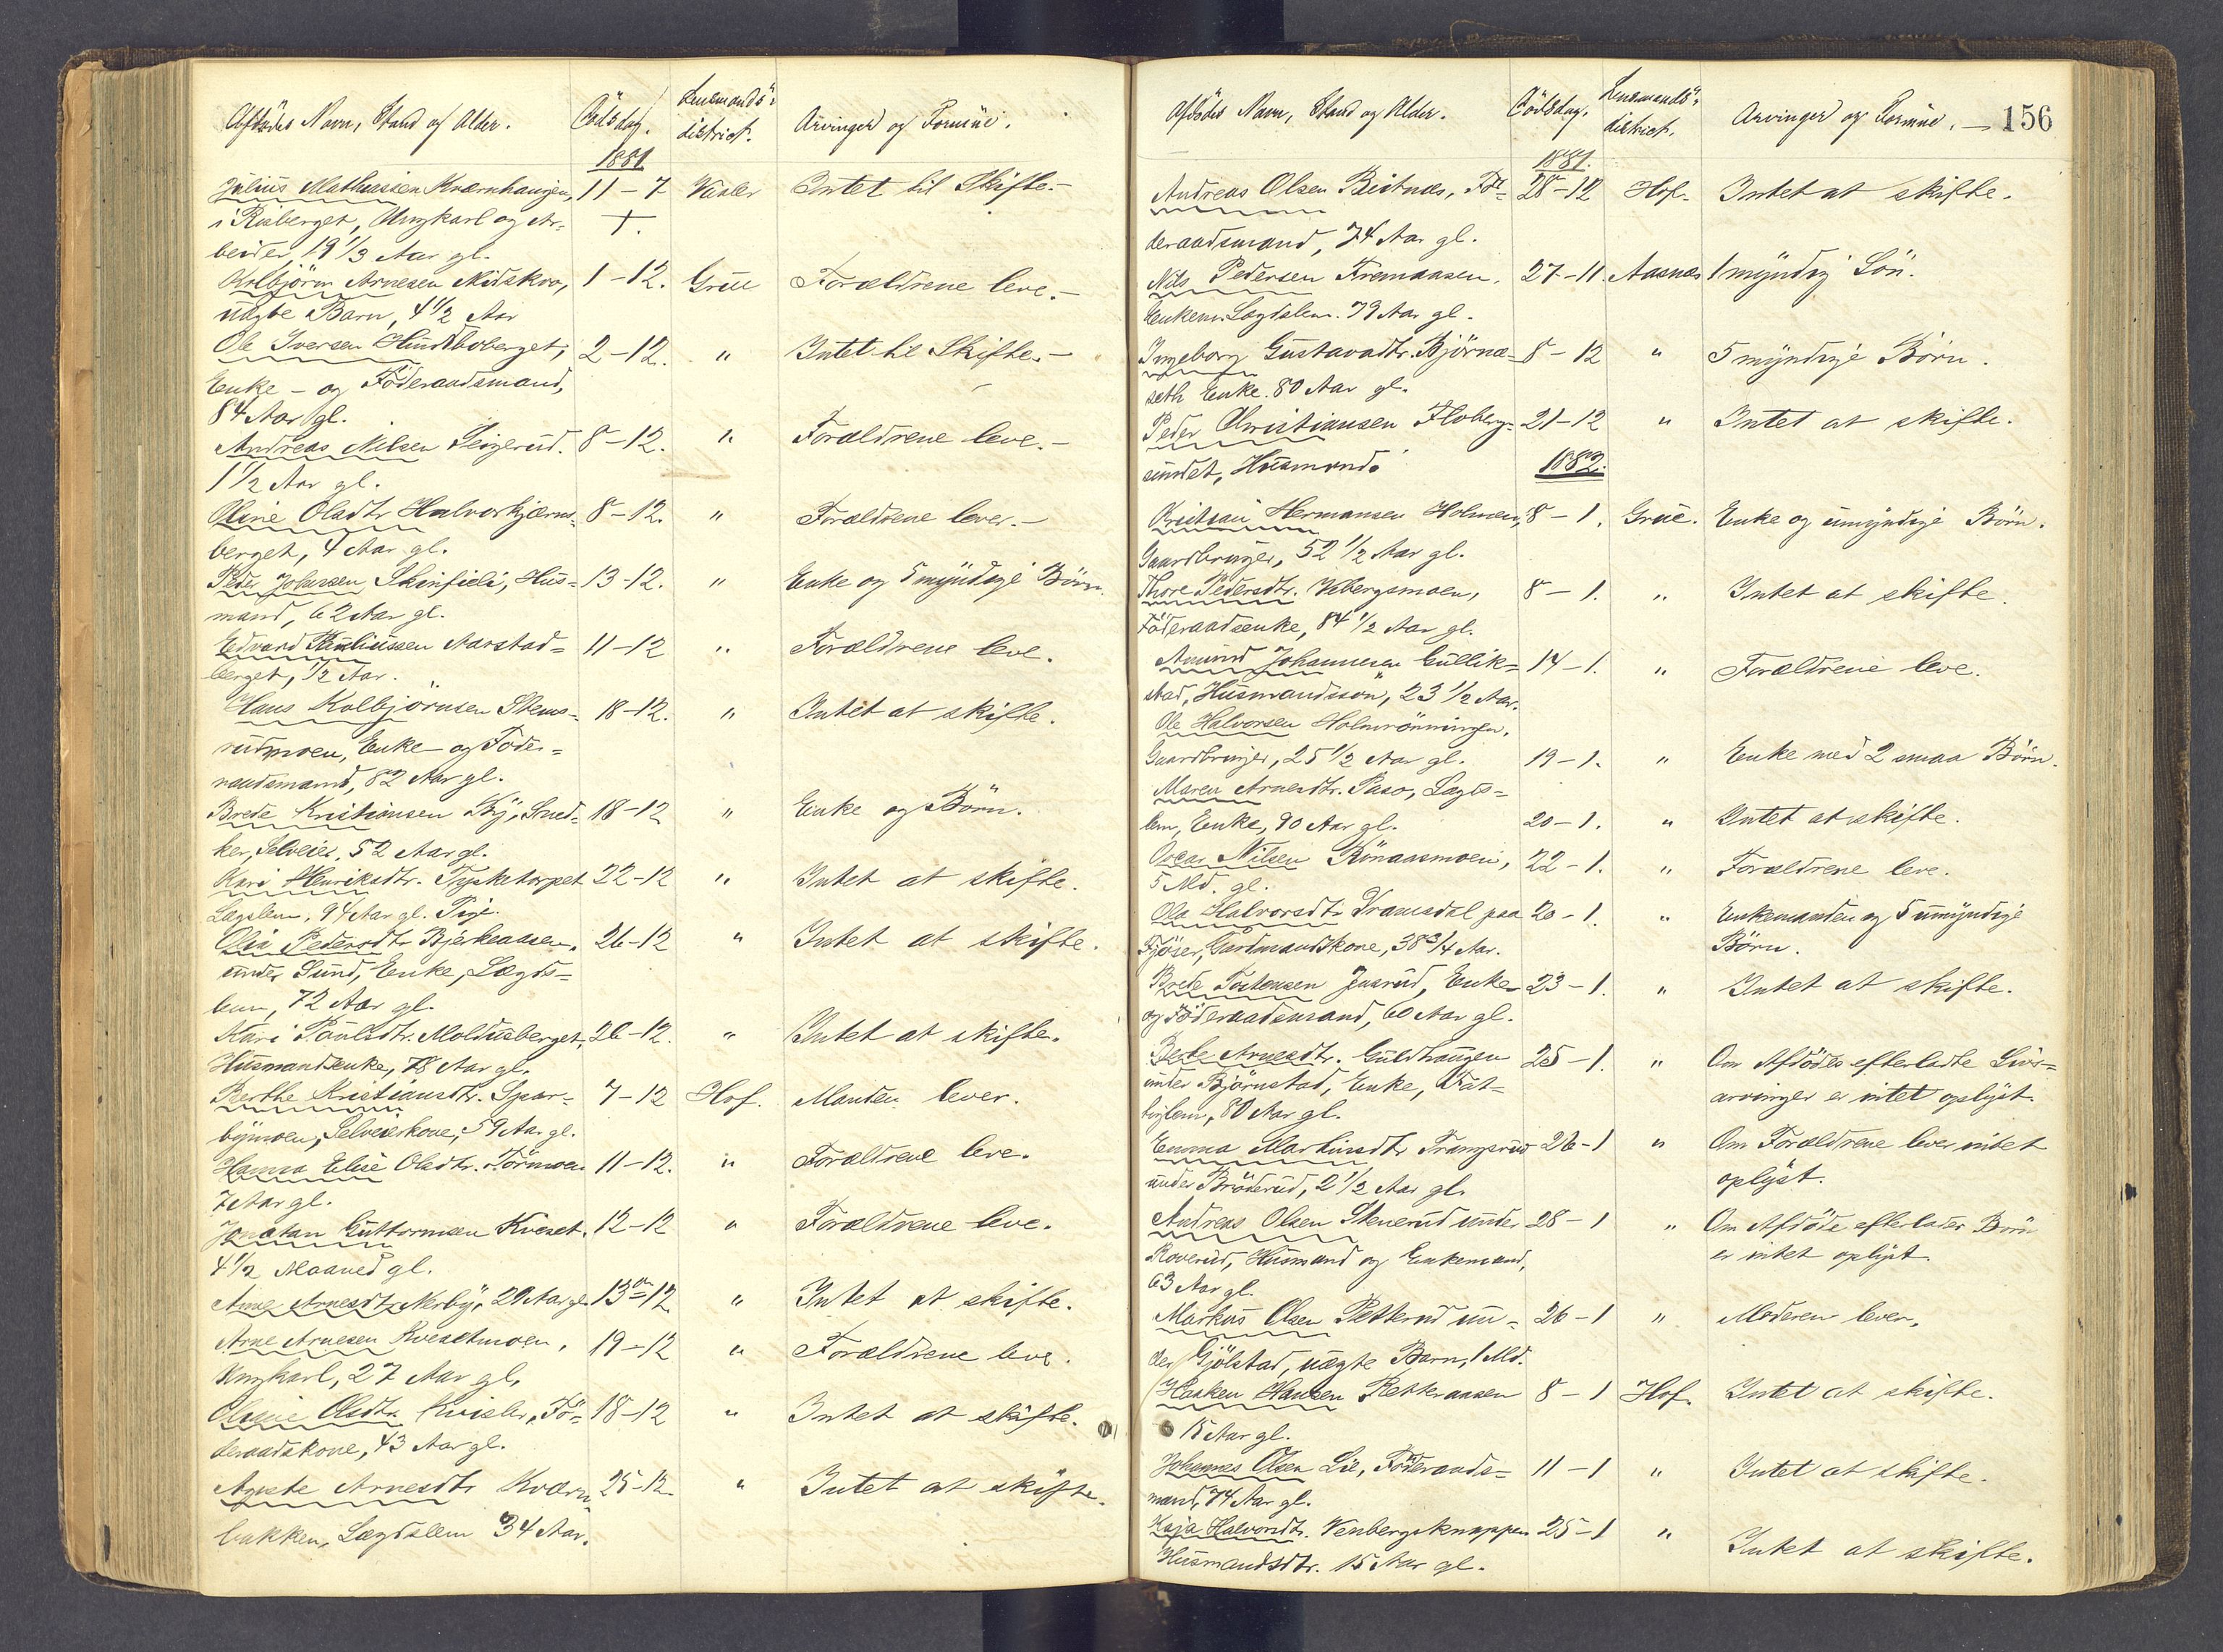 Afdødes Navn, Stand og Alder. Dödsdag. Lensmands- district. Arvinger og Formue.
1881
Julius Mathiassen Kværnhaugen, 11-7 Vaaler Intet til Skifte.-
i Risberget, Ungkarl og Ar- +.
beider, 19 1/3 Aar gl.
Kolbjörn Arnesen Midskov, 1-12. Grue Forældrene leve.-
uægte Barn, 4 1/2 Aar
Ole Iversen Hundboberget, 2-12. " Intet til Skifte.-
Enke- og Föderaadsmand,
84 Aar gl.
Andreas Nilsen Teigerud. 8-12. " Forældrene leve.-
1 1/2 Aar gl.
Oline Olsdtr Halvorkjærns- 8-12. " Forældrene lever.-
berget, 4 Aar gl.
Peder Johnsen Skinfieli, Hus- 13-12. " Enke og 5 myndige Börn.
mand, 62 Aar gl.
Edvard Pauliussen Aarstad- 11-12 " Forældrene leve.
berget, 1/2 Aar.
Hans Kolbjörnsen Skems- 18-12. " Intet at skifte.
rudmoen, Enke- og Föde-
raadsmand, 82 Aar gl.
Brede Kristiansen By, Sned- 18-12 " Enke og Börn.
ker, Selveier, 52 Aar gl.
Kari Henriksdtr. Tysketorpet 22-12 " Intet at skifte.
Lægslem, 94 Aar gl. Pige.
Olia Pedersdtr Bjerkeaasen, 26-12 " Intet at skifte.
under Sund, Enke, Lægds-
lem, 72 Aar gl.
Kari Paulsdtr. Moldusberget, 26-12. " Intet at skifte.
Husmandsenke, 78 Aar gl.
Berthe Kristiansdtr. Spar- 7-12 Hof. Manden lever.
bymoen, Selveierkone, 59 Aar gl.
Hanna Elise Olsdtr. Törmoen 11-12. " Forældrene leve.
7 Aar gl.
Jonatan Guttormsen Kveset. 12-12 " Forældrene leve.
4 1/2 Maaned gl.
Anne Arnesdtr Nerby, 29 Aar gl. 13-12 " Intet at skifte.
Arne Arnesen Kvesetmoen, 19-12 " Forældrene leve.
Ungkarl, 27 Aar gl.
Olsdtr. Kvisler, Fö- 18-12 " Intet at skifte.
deraadskone, 43 Aar gl.
Agnete Arnesdtr Kværn- 25-12. " Intet at skifte.
bakken, Lægdslem 34 Aar.
Afdødes Navn, Stand og Alder. Dödsdag. Lensmands- district. Arvinger og Formue. - 156
1881.
Andreas Olsen Beitnes, Fö- 28-12 Hof. Intet at skifte.
deraadsmand, 74 Aar gl.
Nils Pedersen Fremaasen, 27-11. Aasnes 1 myndig Sön.
Enkem. Lægdslem. 79 Aar gl.
Ingeborg Gustavadtr. Björna- 8-12 " 5 myndige Börn.
seth Enke. 80 Aar gl.
Peder Christiansen Floberg- 21-12 " Intet at skifte.
sundet, Husmand.
1882.
Kristian Hermansen Holmen, 8-1. Grue. Enke og umyndige Börn.
Gaardbruger, 52 1/2 Aar gl.
Thore Pedersdtr. Kbergsmoen, 8-1. " Intet at skifte.
Föderaadsenke, 84 1/2 Aar gl.
Amund Johannesen Gullik- 14-1. " Forældrene leve.
stad, Husmandssön, 23 1/2 Aar.
Ole Halvorsen Holmrönningen,
Gaardbruger, 25 1/2 Aar gl. 19-1. " Enke med 2 smaa Börn.
Maren Arnesdtr. Paso, Lægds-
lem, Enke, 90 Aar gl. 20-1. " Intet at skifte.
Oscar Nilsen Rönaasmoen, 22-1. " Forældrene leve.
5 Md. gl.
Ola Halvorsdtr Dramsdal paa 20-1. " Enkemanden og 5 umyndige
Fjöser, Gaardmandskone, 38 3/4 Aar. Börn.
Brede Tostensen Jusrud, Enke- 23-1. " Intet at skifte.
og Föderaadsmand, 60 Aar gl.
Berte Arnesdtr. Guldhaugen 25-1. " Om Afdödes efterladte Livs-
under Björnstad, Enke, Fat- arvinger er intet oplyst.
tiglem, 80 Aar gl.
Emma Martinsdtr Trangsrud 26-1 " Om Forældrene lever intet
under Bröderud, 2 1/2 Aar gl. oplyst.
Andreas Olsen Stenerud under 28-1 " Om Afdöde efterlader Börn
Roverud, Husmand og Enkemand, er intet oplyst.
63 Aar gl.
Markus Olsen Petterud un- 26-1 " Moderen lever.
der Gjölstad, uægte Barn, 1 Md.
Haaken Hansen Retteraasen 8-1 Hof. Intet at skifte.
15 Aar gl.
Johannes Olsen Lie, Föderaads- 11-1 " Intet at skifte.
mand, 74 Aar gl.
Kaja Halvorsdtr. Venbergsknappen 25-1 " Intet at skifte.
Husmandsdtr. 15 Aar gl.